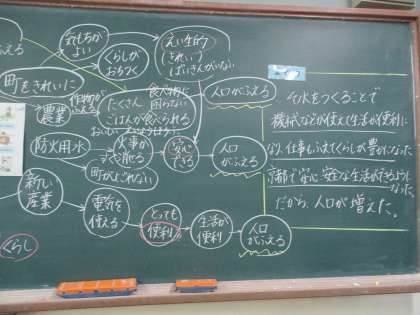 ふえる
気もちが
よい
くらしが
おちつく
えい生的
(きれい)
ばいきんがいない
町をきれいに
農業
作物が
ふえる
たくさん
ごはんが食べられる
食べ物に
困らない
人口がふえる
防火用水
火事が
すぐ消せる
町がよごれない
安心
できる
人口
がふえる
新しい
産業
電気を
使える
とっても
便利
生活が
便利
人口
がふえる
くらし
そ水をつくることで
機械などが使えて生活が便利に
なり、仕事もふえてくらしが豊かになった
京都で安心 安全な生活ができるように
なった
だから、人口が増えた。